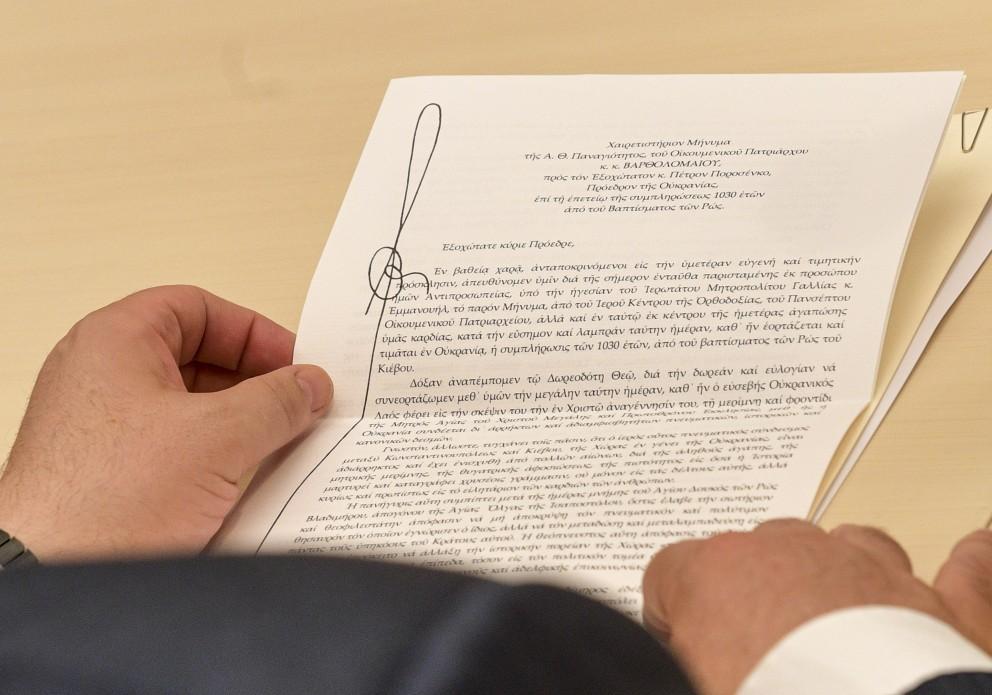 Χαιρετιστήριον Μήνυμα
τῆς Α. Θ. Παναγιότητος, τοῦ Οἰκουμενικοῦ Πατριάρχου
κ. κ. ΒΑΡΘΟΛΟΜΑΙΟΥ,
πρὸς τὸν Ἐξοχώτατον κ. Πέτρον Ποροσένκο,
Πρόεδρον τῆς Οὐκρανίας,
ἐπὶ τῇ ἐπετείῳ τῆς συμπληρώσεως 1030 ἐτῶν
ἀπὸ τοῦ Βαπτίσματος τῶν Ρώς.
Ἐξοχώτατε κύριε Πρόεδρε,
Ἐν βαθείᾳ χαρᾷ, ἀνταποκρινόμενοι εἰς τὴν ὑμετέραν εὐγενῆ καὶ τιμητικὴν
πρόσκλησιν, ἀπευθύνομεν ὑμῖν διὰ τῆς σήμερον ἐνταῦθα παρισταμένης ἐκ προσώπου
ἡμῶν Ἀντιπροσωπείας, ὑπὸ τὴν ἡγεσίαν τοῦ Ἱερωτάτου Μητροπολίτου Γαλλίας κ.
Ἐμμανουήλ, τὸ παρὸν Μήνυμα, ἀπὸ τοῦ Ἱεροῦ Κέντρου τῆς Ὀρθοδοξίας, τοῦ Πανσέπτου
Οἰκουμενικοῦ Πατριαρχείου, ἀλλὰ καὶ ἐν ταὐτῷ ἐκ κέντρου τῆς ἡμετέρας ἀγαπώσης
ὑμᾶς καρδίας, κατὰ τὴν εὔσημον καὶ λαμπρὰν ταύτην ἡμέραν, καθ᾽ ἣν ἑορτάζεται καὶ
τιμᾶται ἐν Οὐκρανίᾳ, ἡ συμπλήρωσις τῶν 1030 ἐτῶν, ἀπὸ τοῦ βαπτίσματος τῶν Ρὼς τοῦ
Κιέβου.
Δόξαν ἀναπέμπομεν τῷ Δωρεοδότῃ Θεῷ, διὰ τὴν δωρεὰν καὶ εὐλογίαν νὰ
συνεορτάζωμεν μεθ᾽ ὑμῶν τὴν μεγάλην ταύτην ἡμέραν, καθ᾽ ἣν ὁ εὐσεβὴς Οὐκρανικὸς
Λαὸς φέρει εἰς τὴν σκέψιν του τὴν ἐν Χριστῷ ἀναγέννησίν του, τῇ μερίμνῃ καὶ φροντίδι
τῆς Μητρὸς Ἁγίας τοῦ Χριστοῦ Μεγάλης καὶ Πρωτοθρόνου Ἐκκλησίας, μεθ᾽ ἧς ἡ
Οὐκρανία συνδέεται δι᾽ ἀρρήκτων καὶ ἀδιαμφισβητήτων πνευματικῶν, ἱστορικῶν καὶ
κανονικῶν δεσμῶν.
Γνωστόν, ἄλλωστε, τυγχάνει τοῖς πᾶσιν, ὅτι ὁ ἱερὸς οὗτος πνευματικὸς σύνδεσμος
μεταξὺ Κωνσταντινουπόλεως καὶ Κιέβου, τῆς Χώρας ἐν γένει τῆς Οὐκρανίας, εἶναι
ἀδιάρρηκτος καὶ ἔχει ἐνισχυθῆ ἀπὸ πολλῶν αἰώνων, διὰ τῆς ἀληθοῦς ἀγάπης, τῆς
μητρικῆς μερίμνης, τῆς θυγατρικῆς ἀφοσιώσεως, τῆς πιστότητος εἰς ὅσα ἡ Ἱστορία
μαρτυρεῖ καὶ καταγράφει χρυσέοις γράμμασιν, οὐ μόνον εἰς τὰς δέλτους αὐτῆς, ἀλλὰ
κυρίως καὶ πρωτίστως εἰς τὸ εἰλητάριον τῶν καρδιῶν τῶν ἀνθρώπων.
Ἡ πανήγυρις αὕτη συμπίπτει μετὰ τῆς ἡμέρας μνήμης τοῦ Ἁγίου Δουκὸς τῶν Ρὼς
Βλαδιμήρου, ἀπογόνου τῆς Ἁγίας Ὄλγας τῆς Ἰσαποστόλου, ὅστις ἔλαβε τὴν σωτήριον
καὶ θεοφιλεστάτην ἀπόφασιν νὰ μὴ ἀποκρύψῃ τὸν πνευματικὸν καὶ πολύτιμον
θησαυρὸν τὸν ὁποῖον ἐγνώρισεν ὁ ἴδιος, ἀλλὰ νὰ τὸν μεταδώσῃ καὶ μεταλαμπαδεύσῃ εἰς
πάντας τοὺς ὑπηκόους τοῦ Κράτους αὐτοῦ. Ἡ θεόπνευστος αὕτη ἀπόφασις τοῦ
νὰ ἀλλάξῃ τὴν ἱστορικὴν πορείαν τῆς Χώρας
ἐπίπεδα, τόσον εἰς τὸν πολιτικὸν τομέα
καὶ ἀδελφικῆς ἐπικοινωνίας